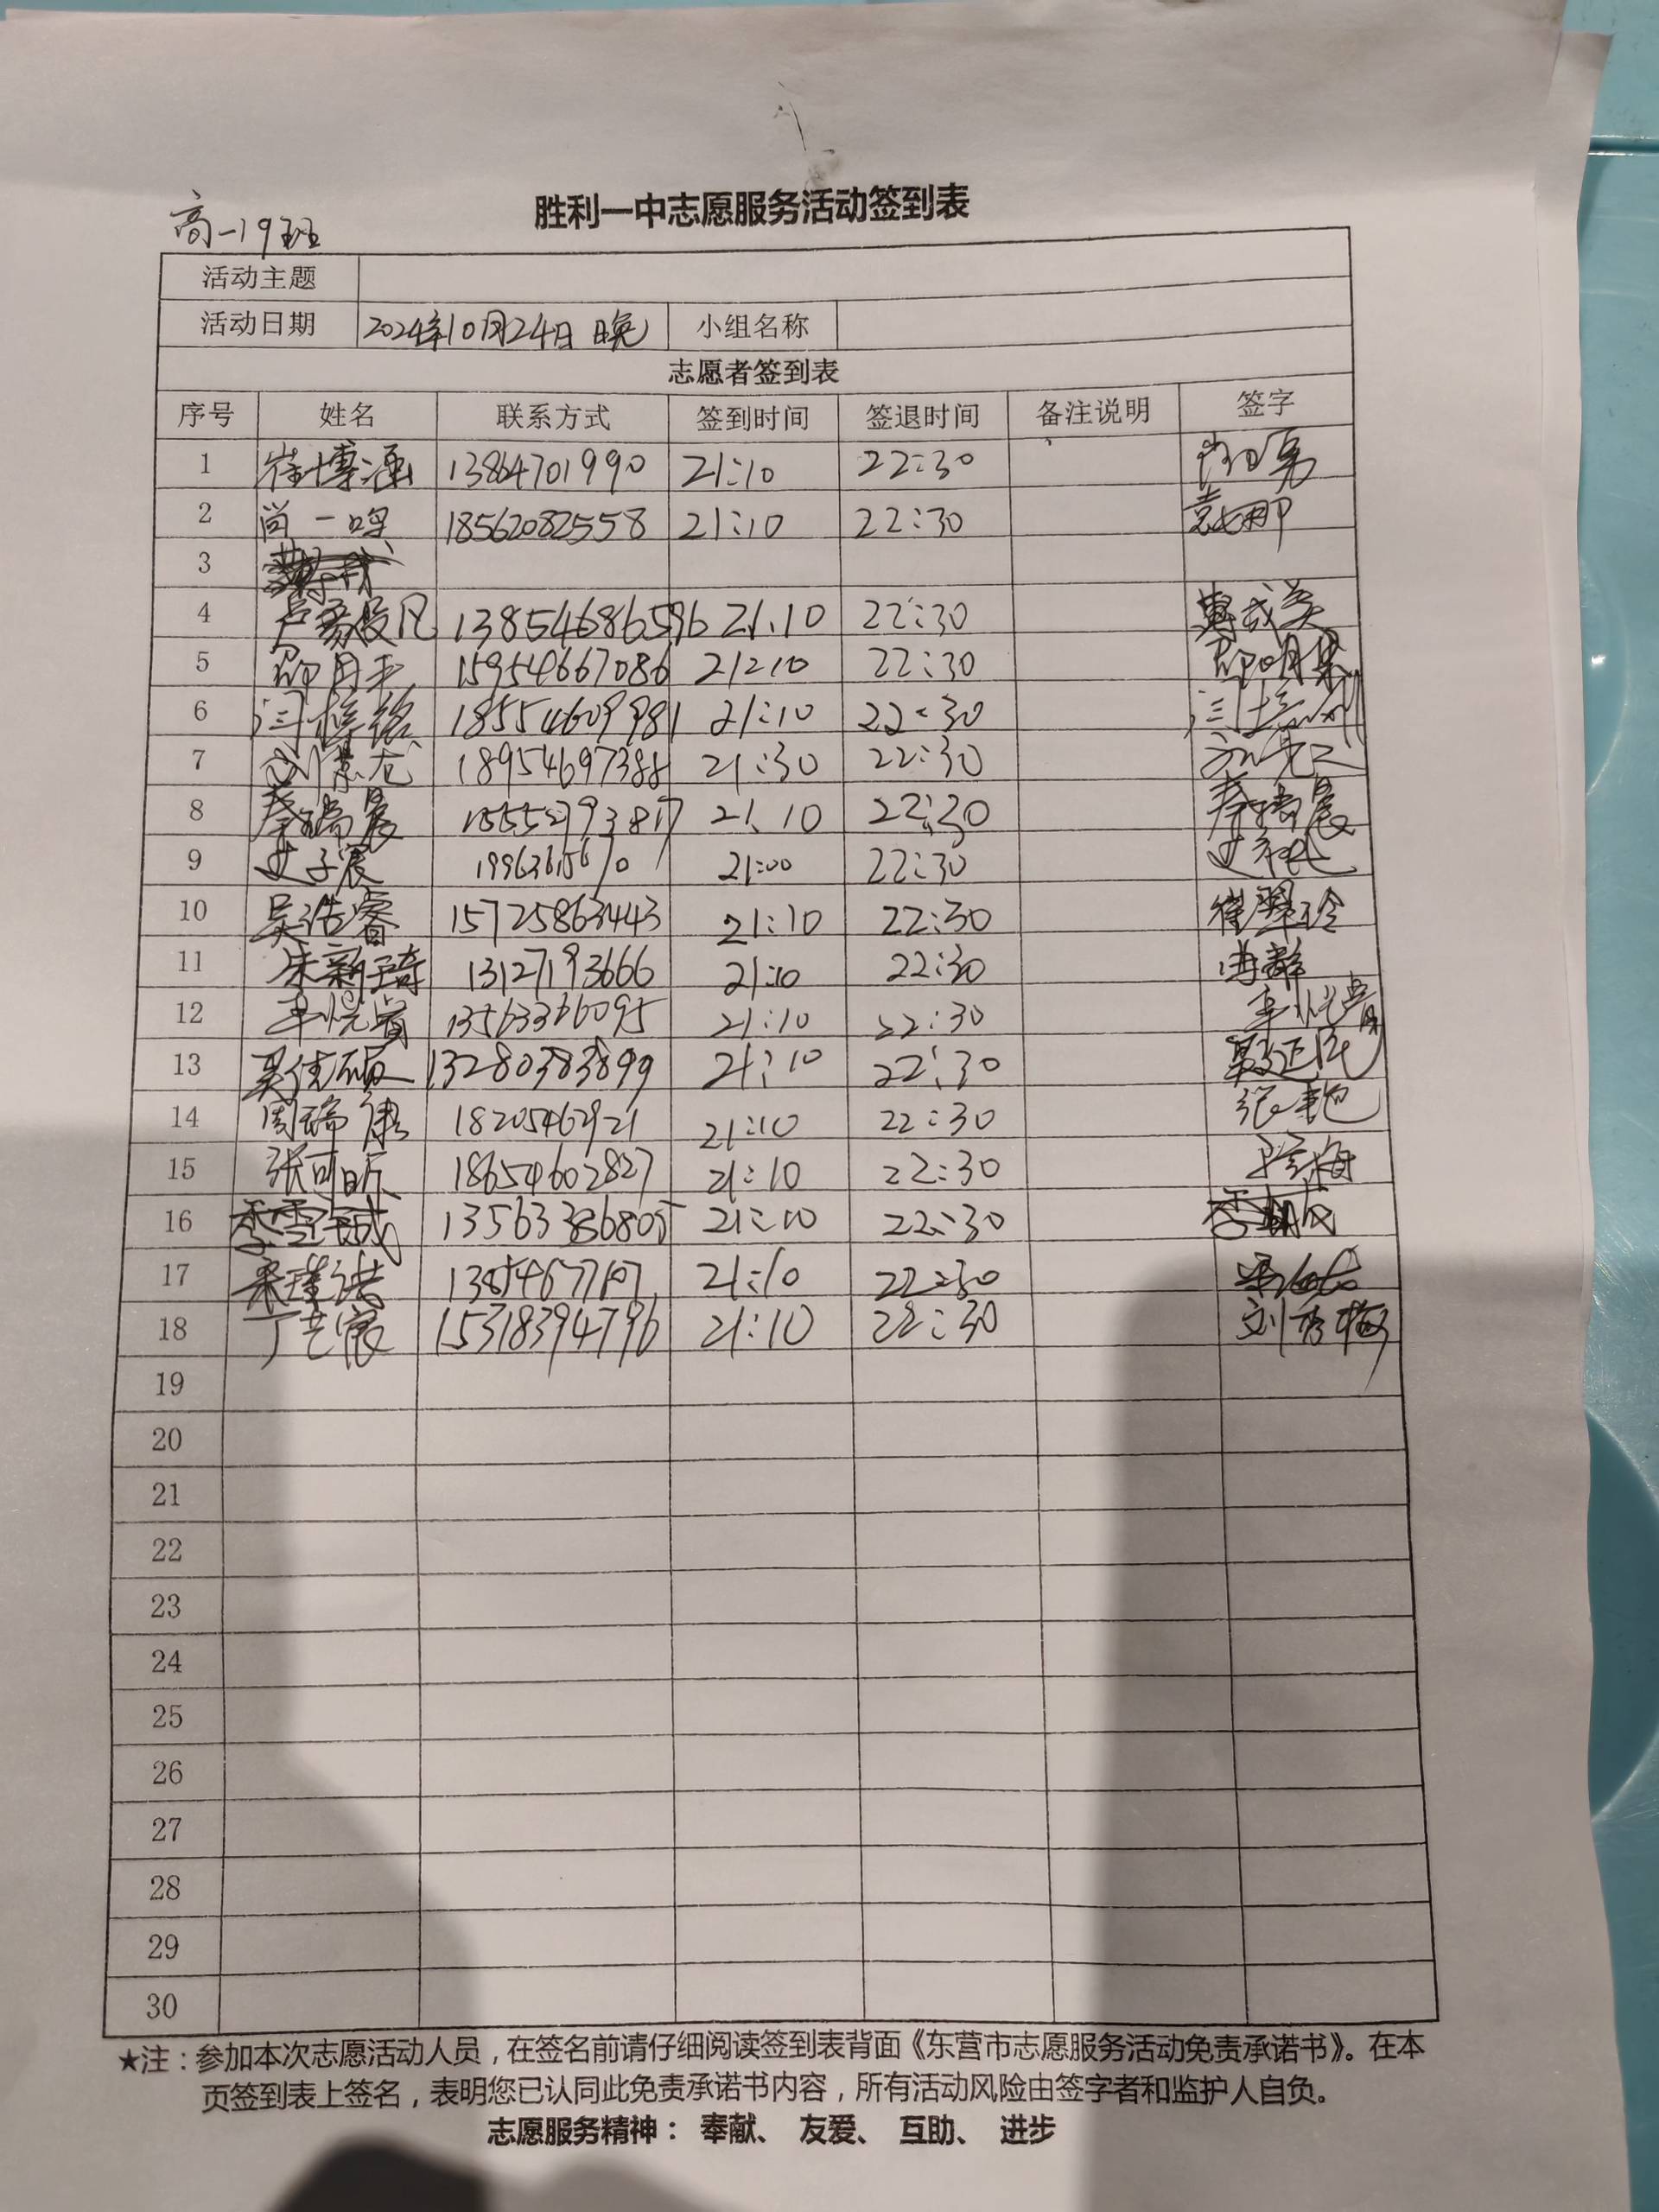 胜利一中志愿服务活动签到表
高一19班
活动主题
活动日期 2024年10月24日 晚 小组名称
志愿者签到表
序号 姓名 联系方式 签到时间 签退时间 备注说明 签字
1 崔博涵 13864701990 21:10 22:30
2 尚一鸣 18562082558 21:10 22:30 袁娜
3
4 13854686596 21:10 22:30
5 15954667086 21:10 22:30
6 闫梓铭 18554609981 21:10 22:30
7 18954697388 21:30 22:30
8 秦瑞晨 15552793817 21:10 22:30 秦瑞晨
9 史子宸 21:00 22:30
10 吴浩睿 15725863443 21:10 22:30 崔翠玲
11 朱新琦 13127193666 21:10 22:30
12 13563366095 21:10 22:30
13 吴佳硕 13280383899 21:10 22:30
14 周瑞康 18205462921 21:10 22:30 张艳
15 张可昕 18654602827 21:10 22:30
16 21:10 22:30
17 21:10 22:30
18 丁艺宸 15318394796 21:10 22:30 刘秀梅
19
20
21
22
23
24
25
26
27
28
29
30
★注：参加本次志愿活动人员，在签名前请仔细阅读签到表背面《东营市志愿服务活动免责承诺书》。在本
页签到表上签名，表明您已认同此免责承诺书内容，所有活动风险由签字者和监护人自负。
志愿服务精神： 奉献、 友爱、 互助、 进步